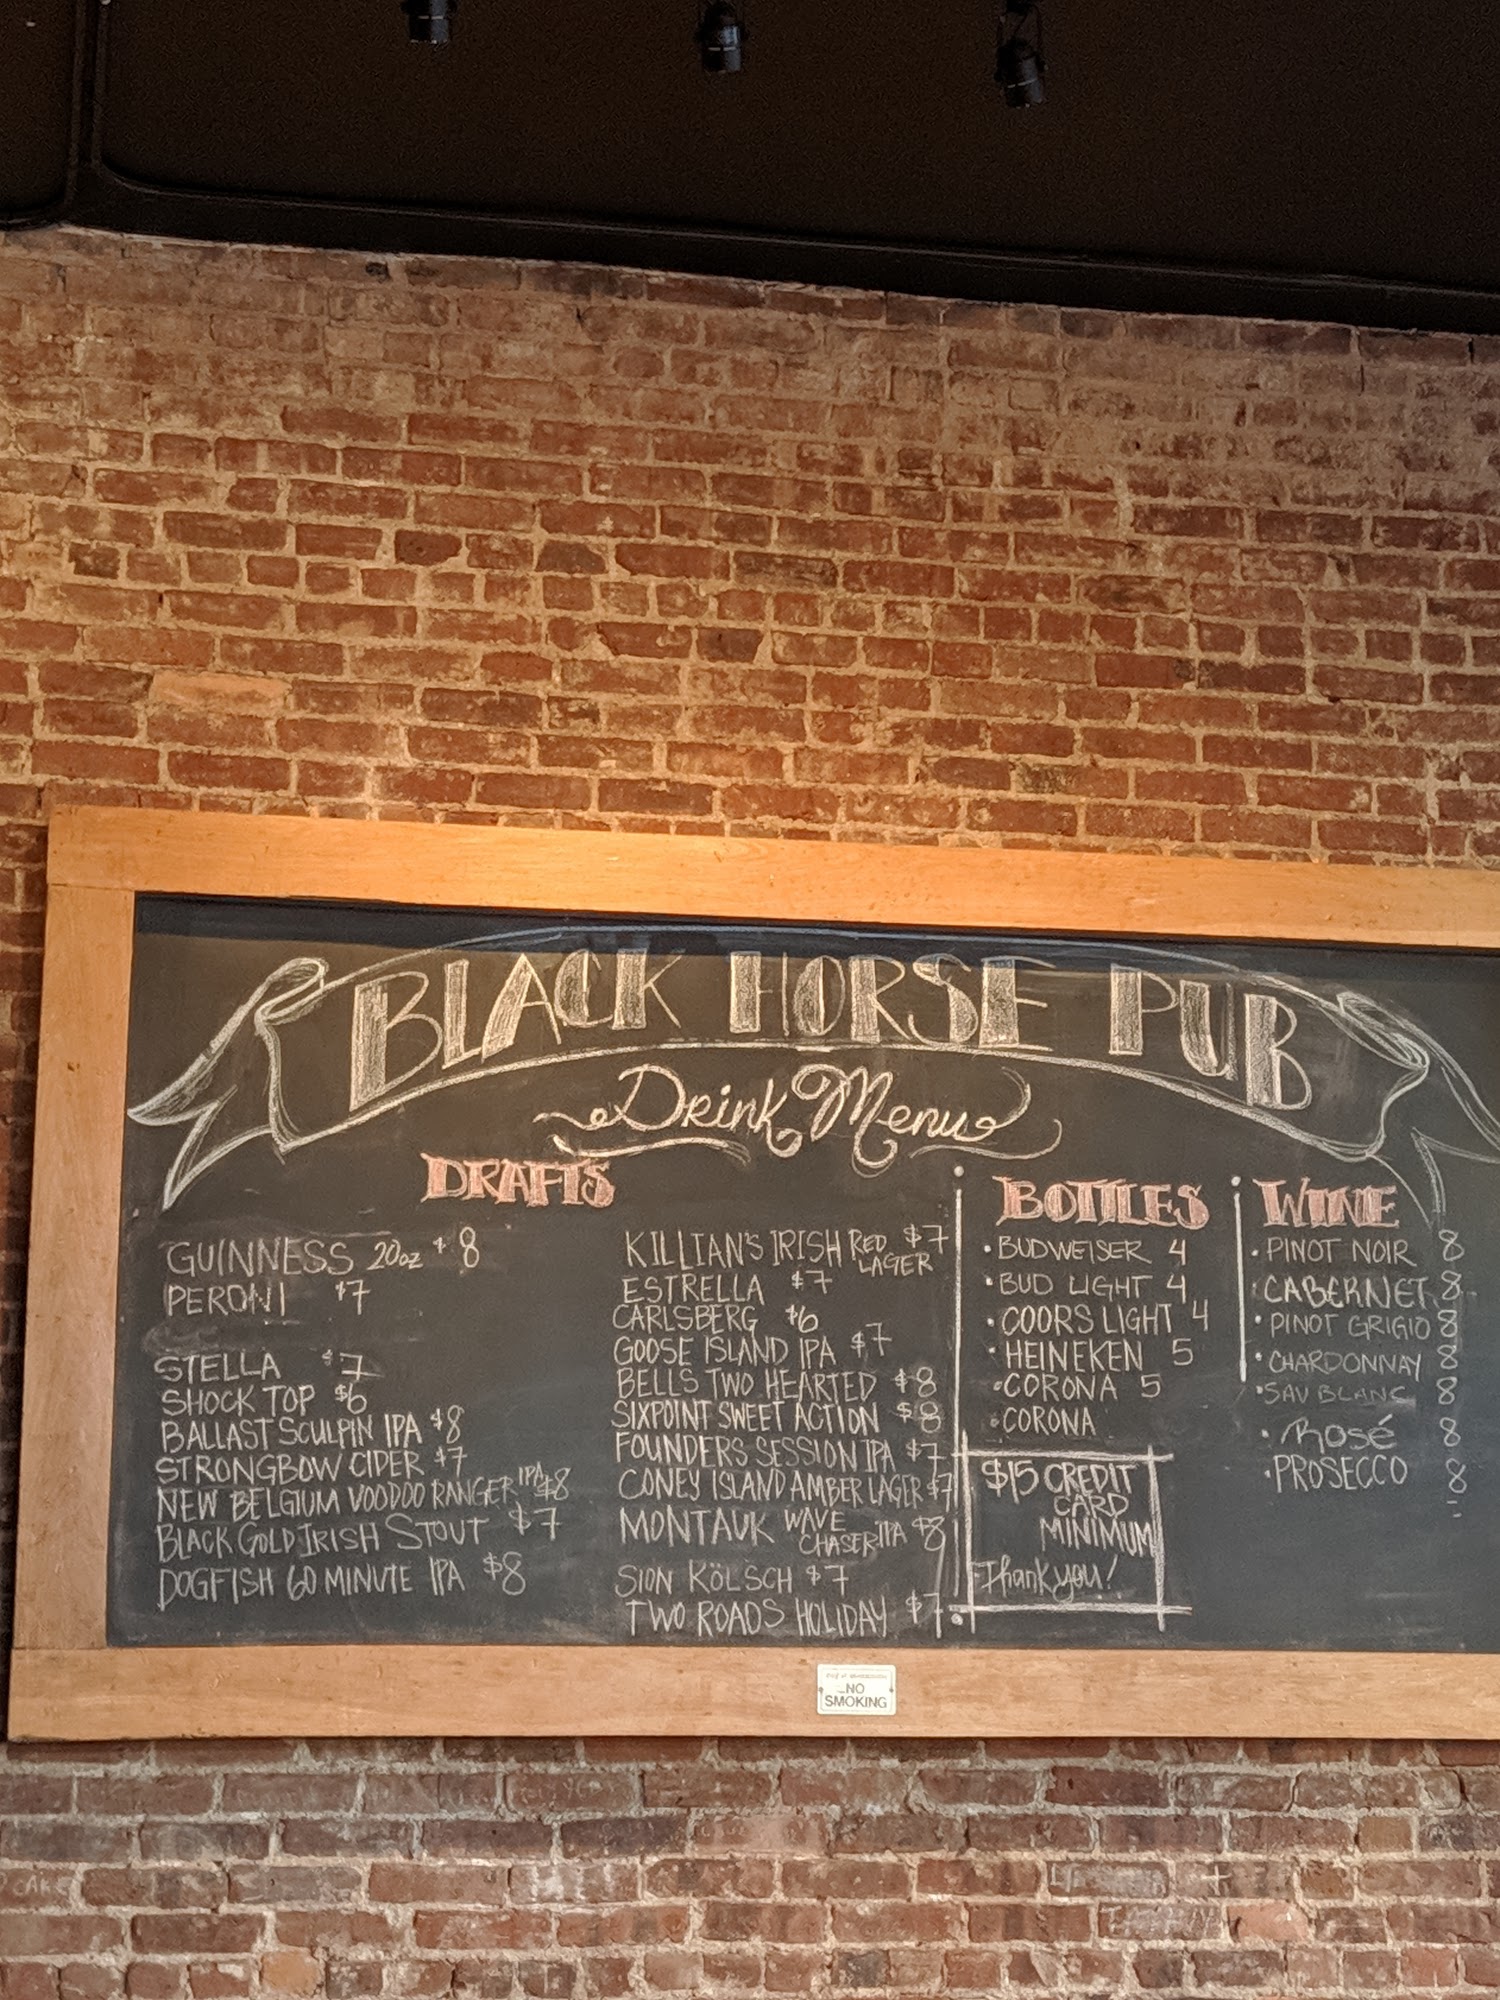 BLACK HORSE PUB
Drink Menu
DRAFTS
GUINNESS 20oz $8
PERONI $7
STELLA $7
SHOCK TOP $6
BALLAST SCULPIN IPA $8
STRONGBOW CIDER $7
NEW BELGIUM VOODOO RANGER IPA $8
BLACK GOLD IRISH STOUT $7
DOGFISH 60 MINUTE IPA $8
KILLIAN'S IRISH RED LAGER $7
ESTRELLA $7
CARLSBERG $6
GOOSE ISLAND IPA $7
BELLS TWO HEARTED $8
SIXPOINT SWEET ACTION $8
FOUNDERS SESSION IPA $7
CONEY ISLAND AMBER LAGER $7
MONTAUK WAVE CHASER IPA $8
SION KÖLSCH $7
TWO ROADS HOLIDAY $7
BOTTLES
• BUDWEISER 4
• BUD LIGHT 4
• COORS LIGHT 4
• HEINEKEN 5
• CORONA 5
• CORONA
$15 CREDIT
CARD
MINIMUM
Thank you!
WINE
• PINOT NOIR 8
CABERNET 8
• PINOT GRIGIO 8
• CHARDONNAY 8
• SAV BLANC 8
• Rosé 8
• PROSECCO 8
NO
SMOKING